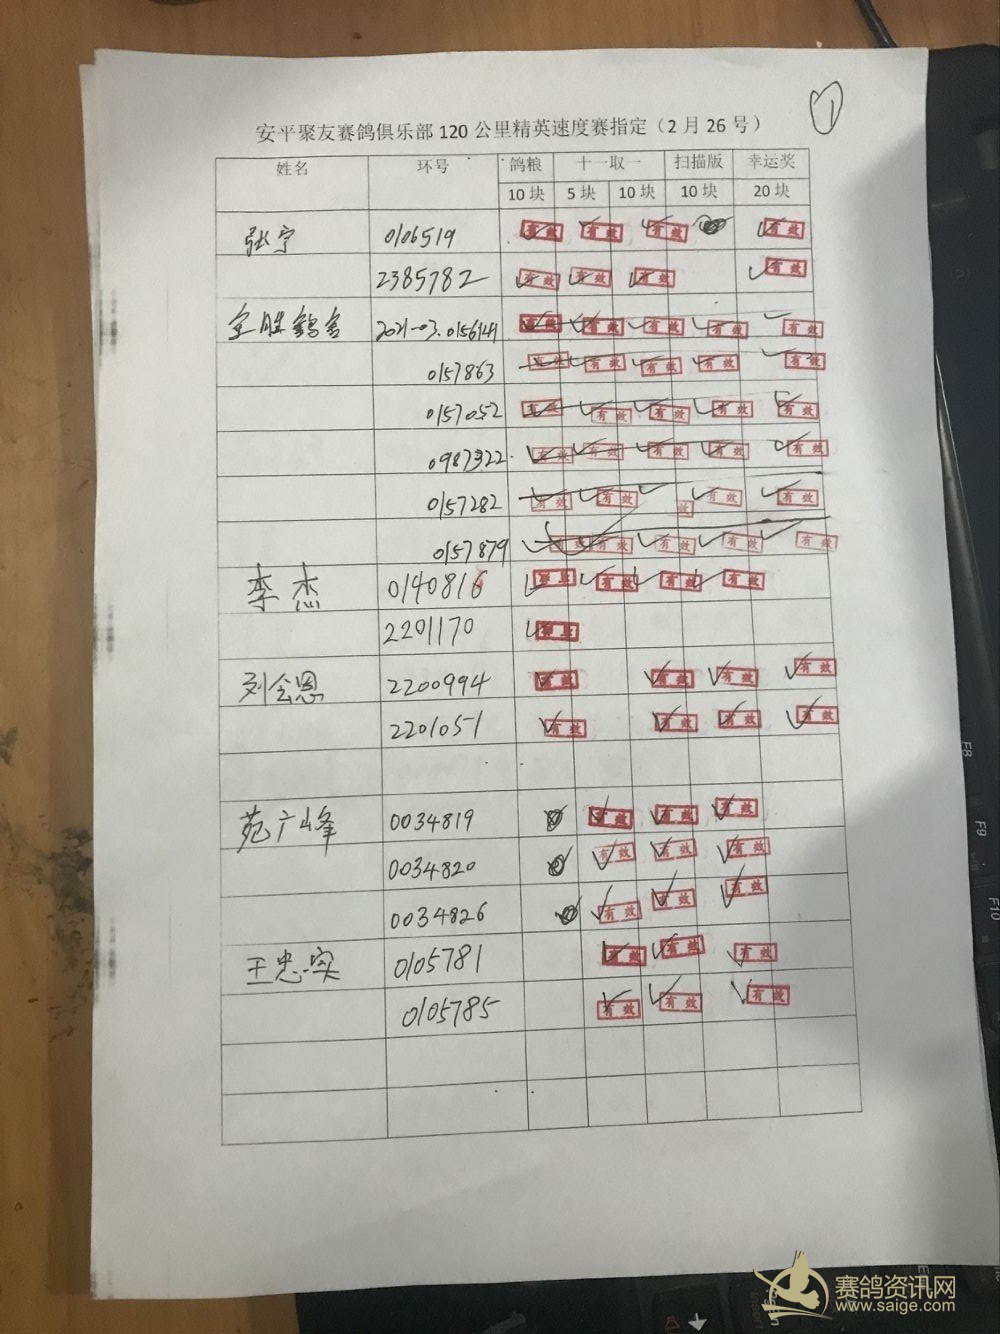 1
安平聚友赛鸽俱乐部 120 公里精英速度赛指定（2 月 26 号）
姓名 环号 鸽粮 十一取一 扫描版 幸运奖
10 块 5 块 10 块 10 块 20 块
张宁 0106519 有效 有效 有效 有效
2385782 有效 有效 有效 有效
2021-03.0156141 有效 有效 有效 有效 有效
0157863 有效 有效 有效 有效 有效
0157052 有效 有效 有效 有效 有效
0987322 有效 有效 有效 有效 有效
0157282 有效 有效 有效 有效 有效
0157879 有效 有效 有效 有效 有效
李杰 0140816 有效 有效 有效
2201170
刘会恩 2200994 有效 有效 有效 有效
2201051 有效 有效 有效 有效
苑广峰 0034819 有效 有效 有效
0034820 有效 有效 有效
0034826 有效 有效 有效
王忠实 0105781 有效 有效 有效
0105785 有效 有效 有效
F8
F9
F10
赛鸽资讯网
www.saige.com